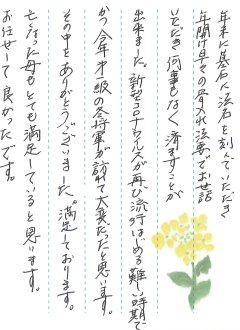 年末に墓石に法名を刻んでいただき
年開け早々の骨入れ法要でお世話
いただき、何事もなく済ますことが
出来ました。新型コロナウイルスが再び流行はじめる難しい時期で
かつ今年一級の冬将軍が訪れて大変だったと思います。
その中をありがとうございました。満足しております。
亡なった母もとても満足していると思います。
お任せして良かったです。